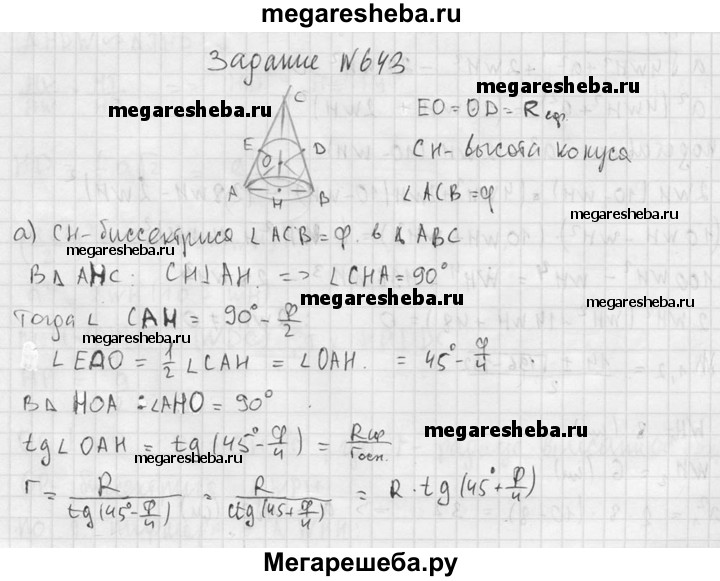 megaresheba.ru
Задание №643
megaresheba.ru
C
E
O
D
A
H
B
EO = OD = R сф.
megaresheba.ru
CH - высота конуса
∠ACB = φ
megaresheba.ru
а) CH - биссектриса ∠ACB = φ. в Δ ABC
megaresheba.ru
В Δ AHC: CH⊥AH. => ∠CHA = 90°
megaresheba.ru
megaresheba.ru
Тогда ∠ CAH = 90° - φ/2
megaresheba.ru
∠ EAO = 1/2 ∠CAH = ∠OAH. = 45° - φ/4.
В Δ HOA : ∠AHO = 90°.
tg∠OAH = tg(45° - φ/4) = Rсф/rосн.
megaresheba.ru
megaresheba.ru
r = R/tg(45° - φ/4) = R/ctg(45 + φ/4) = R · tg(45° + φ/4)
Мегарешеба.ру